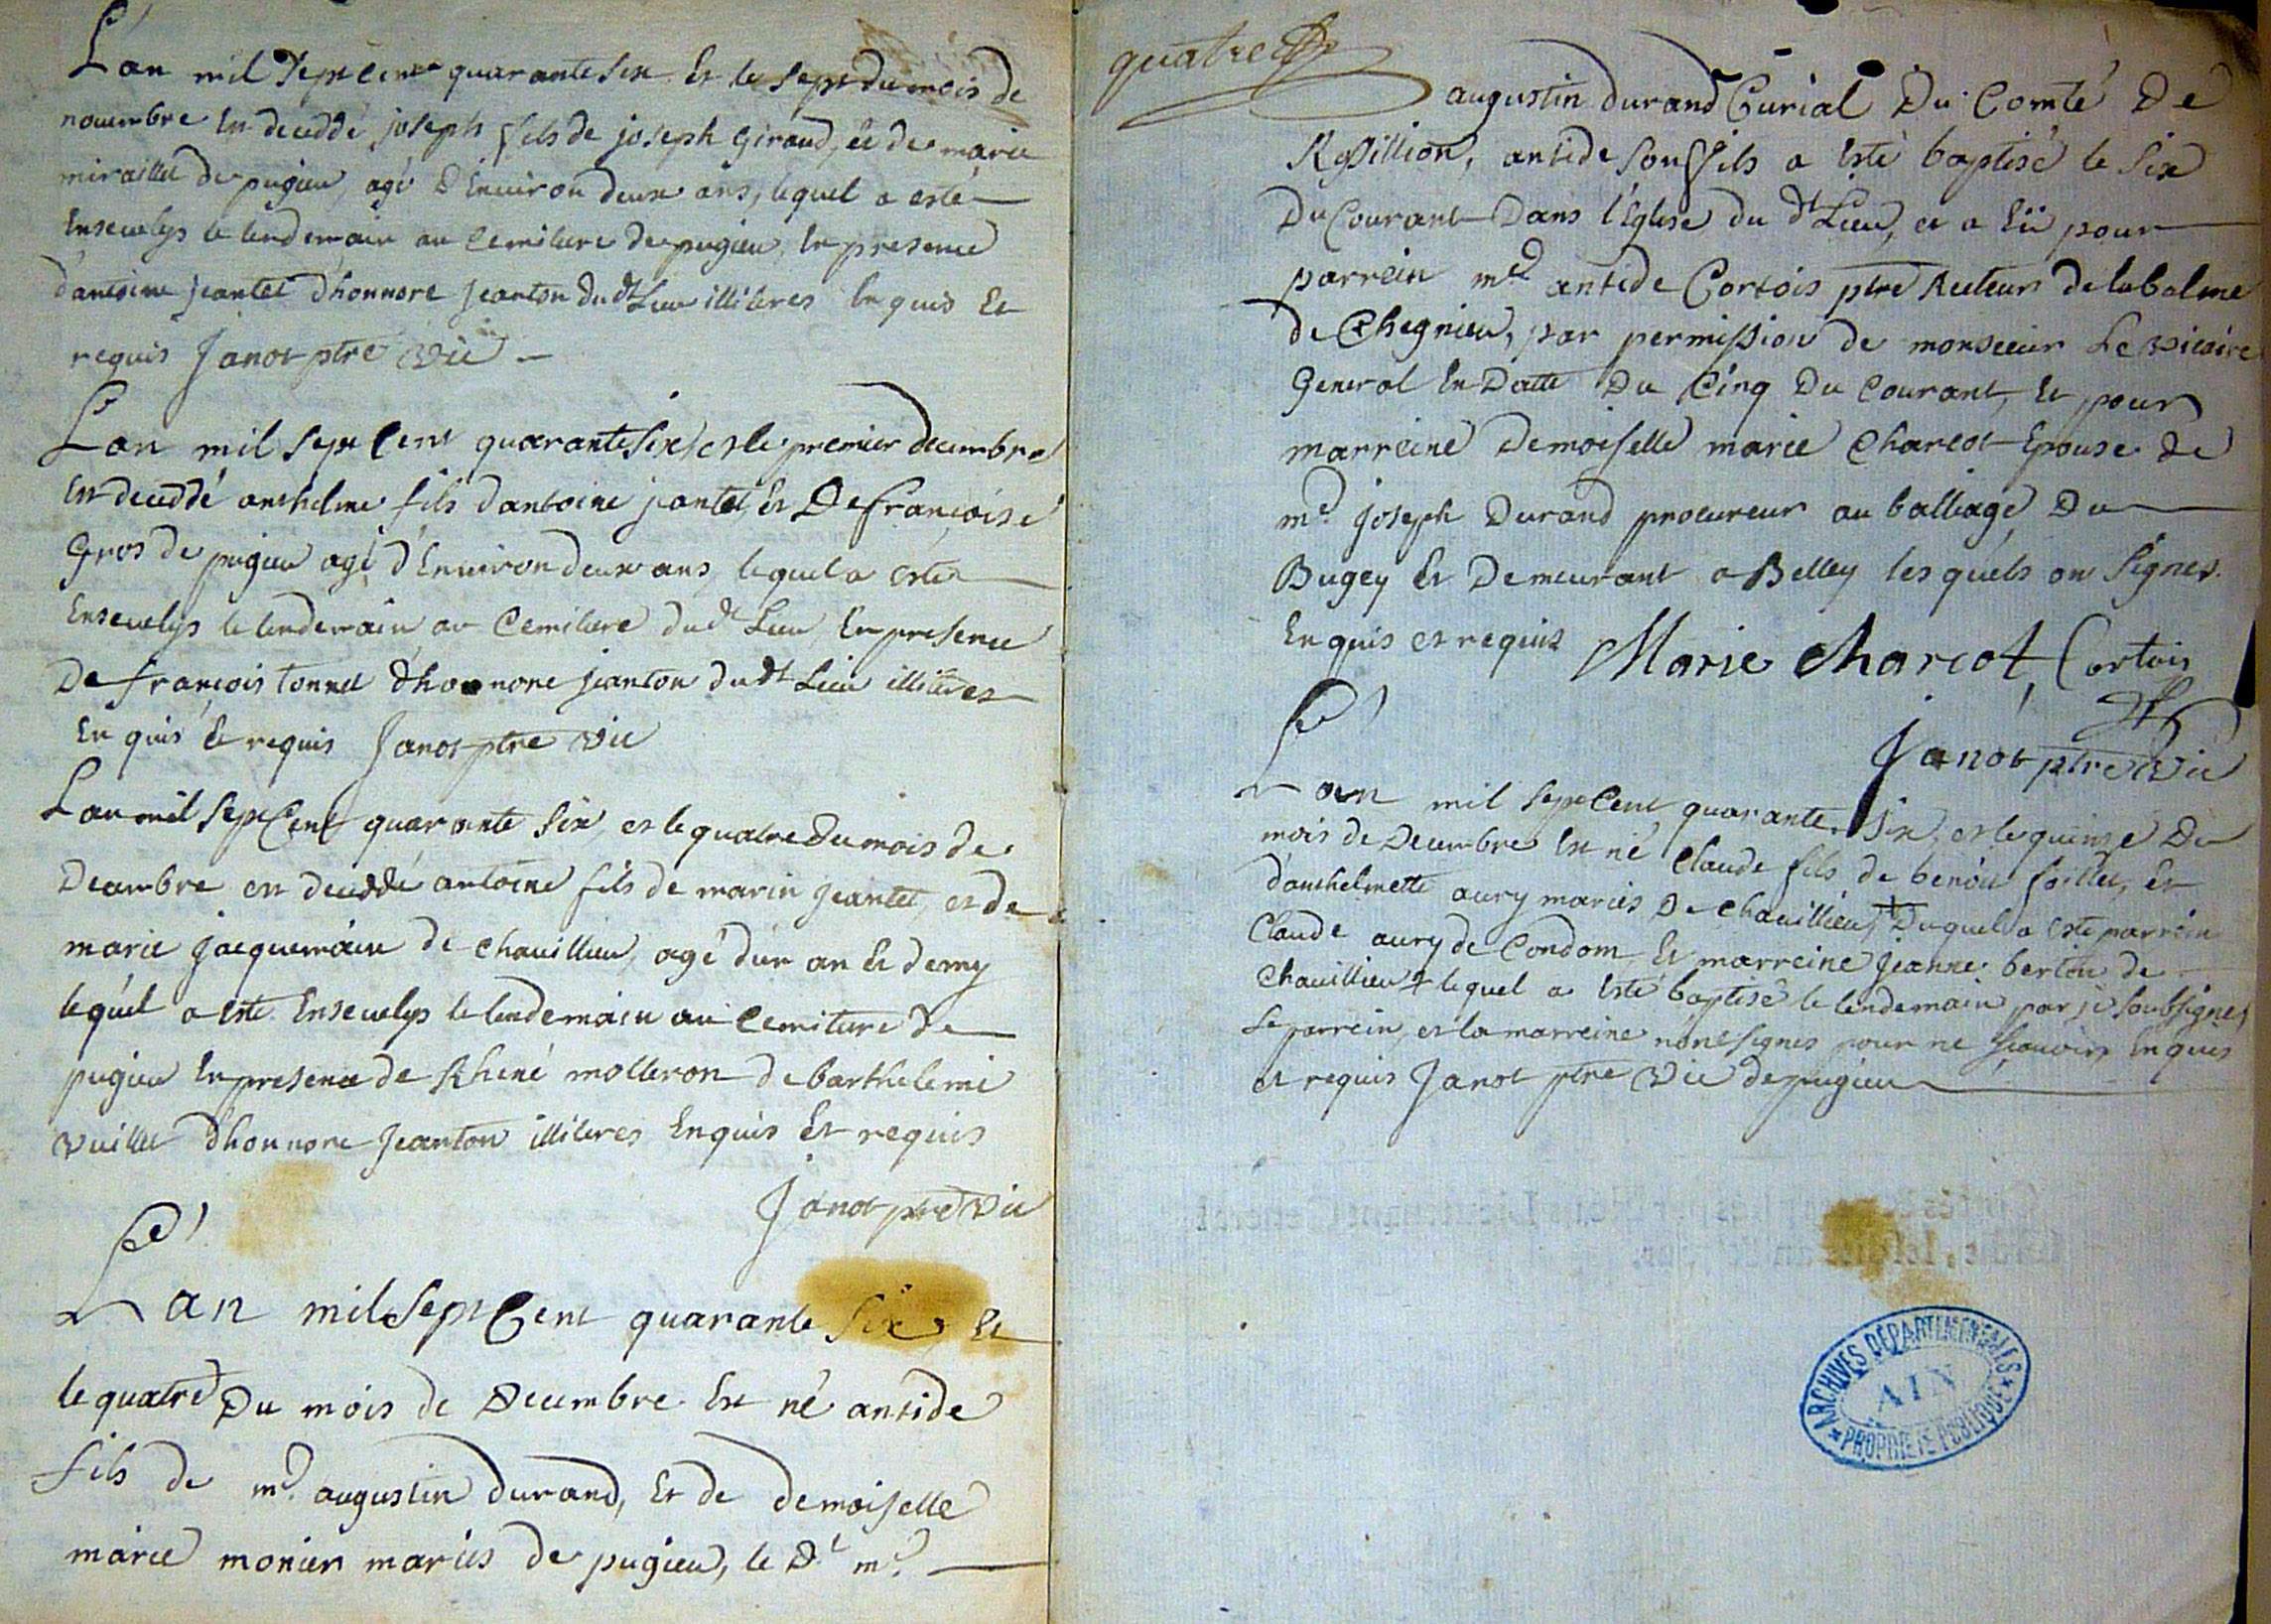 L'an mil sept cent quarante six Et le sept du mois de
nouembre Est decedé joseph fils de joseph Giraud, et de marie
miraillet de pugieu, agé D'Enuiron deux ans, lequel a esté
Enseuelys le lendemain au Cemitiere de pugieu, En presence
d'antoine jeantet d'honnore jeanton du dt Lieu illiteres Enquis Et
requis Janot ptre vic
L'an mil sept Cent quarante six, et le premier decembre
Est decedé anthelme fils d'antoine jantet, Et De francoise
Gros de pugieu agé d'Enuiron deux ans, lequel a esté
Enseuelys le lendemain au Cemitiere du dt Lieu En presence
De francois tonnet d'honnore jeanton du dt Lieu illiteres
Enquis Et requis Janot ptre vic
L'an mil sept Cent quarante six, et le quatre Du mois de
Decembre est decedé antoine fils de marin jeantet, et de
marie jacquemain de chauillieu, agé d'un an Et demy
lequel a esté Enseuelys le lendemain au Cemitiere de
pugieu En presence de Rhené molleron de barthelemi
vuillet d'honnore Jeanton illiteres Enquis Et requis
Janot ptre vic
L'an mil sept Cent quarante six, Et
le quatre Du mois de Decembre Est né antide
fils de me. augustin Durand, Et de demoiselle
marie monier mariés de pugieu, le Dt me.
quatre
augustin Durand Curial Du Comté De
Rossillion, antide son fils a Esté baptisé le six
Du Courant Dans l'Eglise du dt Lieu, et a Eü pour
parrein me. antide Cortois ptre Recteur de la balme
de Chegnieu, par permission de monsieur Le vicaire
General En Datte Du Cinq Du Courant, Et pour
marreine Demoiselle marie Charcot Epouse de
me. joseph Durand procureur au balliage Du
Bugey Et Demeurant a Belley lesquels on signés
Enquis et requis Marie Charcot Cortois
Janot ptre vic
L'an mil sept Cent quarante six, et le quinze Du
mois de Decembre Est né Claude fils de benoit foillet, Et
d'anthelmette aury mariés De chauillieu, + Duquel a esté parrein
Claude aury de Condom Et marreine jeanne berton de
Chauillieu + lequel a Esté baptisé le lendemain par je soubsignés
Le parrein, et la marreine n'ont signés pour ne scauoir Enquis
et requis Janot ptre vic de pugieu
ARCHIVES DÉPARTEMENTALES
AIN
PROPRIÉTÉ PUBLIQUE